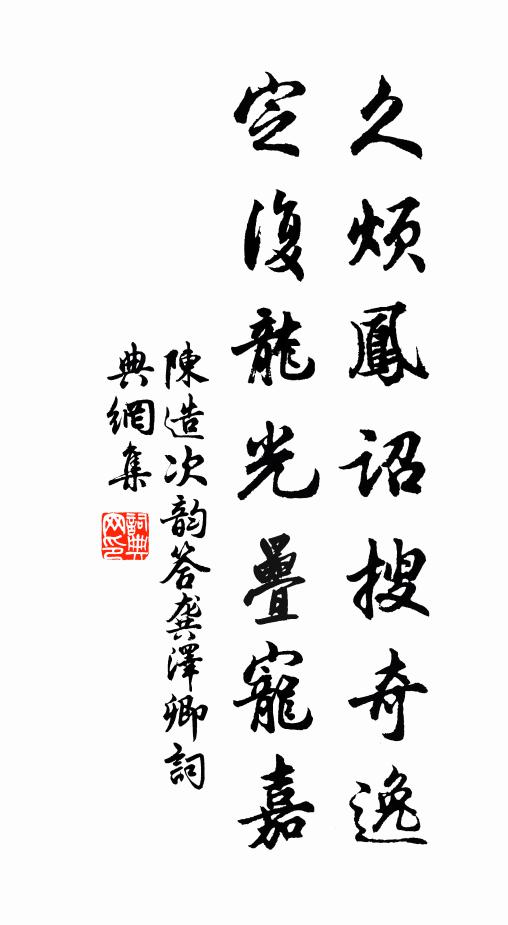 久煩鳳詔搜奇逸
定復龍光疊寵嘉
陳造次韵答龔澤卿詞
典網集
詞典網印